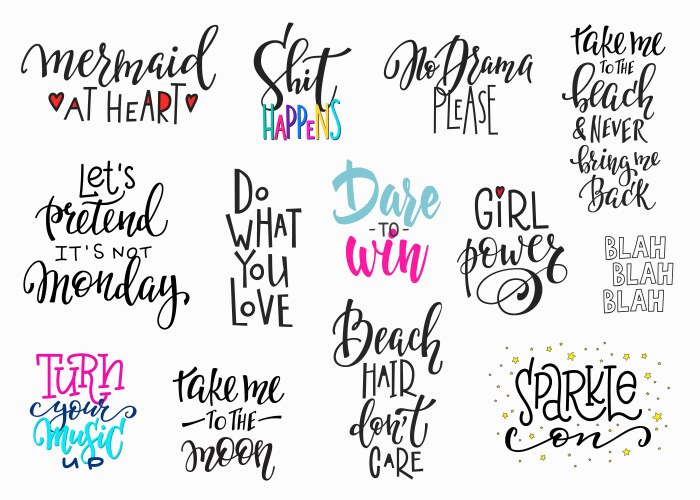 mermaid
AT HEART
Shit
HAPPENS
No Drama
PLEASE
take me
TO THE
beach
& NEVER
bring me
Back
Let's
pretend
IT'S NOT
Monday
Do
WHAT
YOU
LOVE
Dare
-TO-
win
GiRL
power
BLAH
BLAH
BLAH
TURN
your
music
UP
take me
-TO THE-
moon
Beach
HAIR
don't
CARE
SPARKLE
on